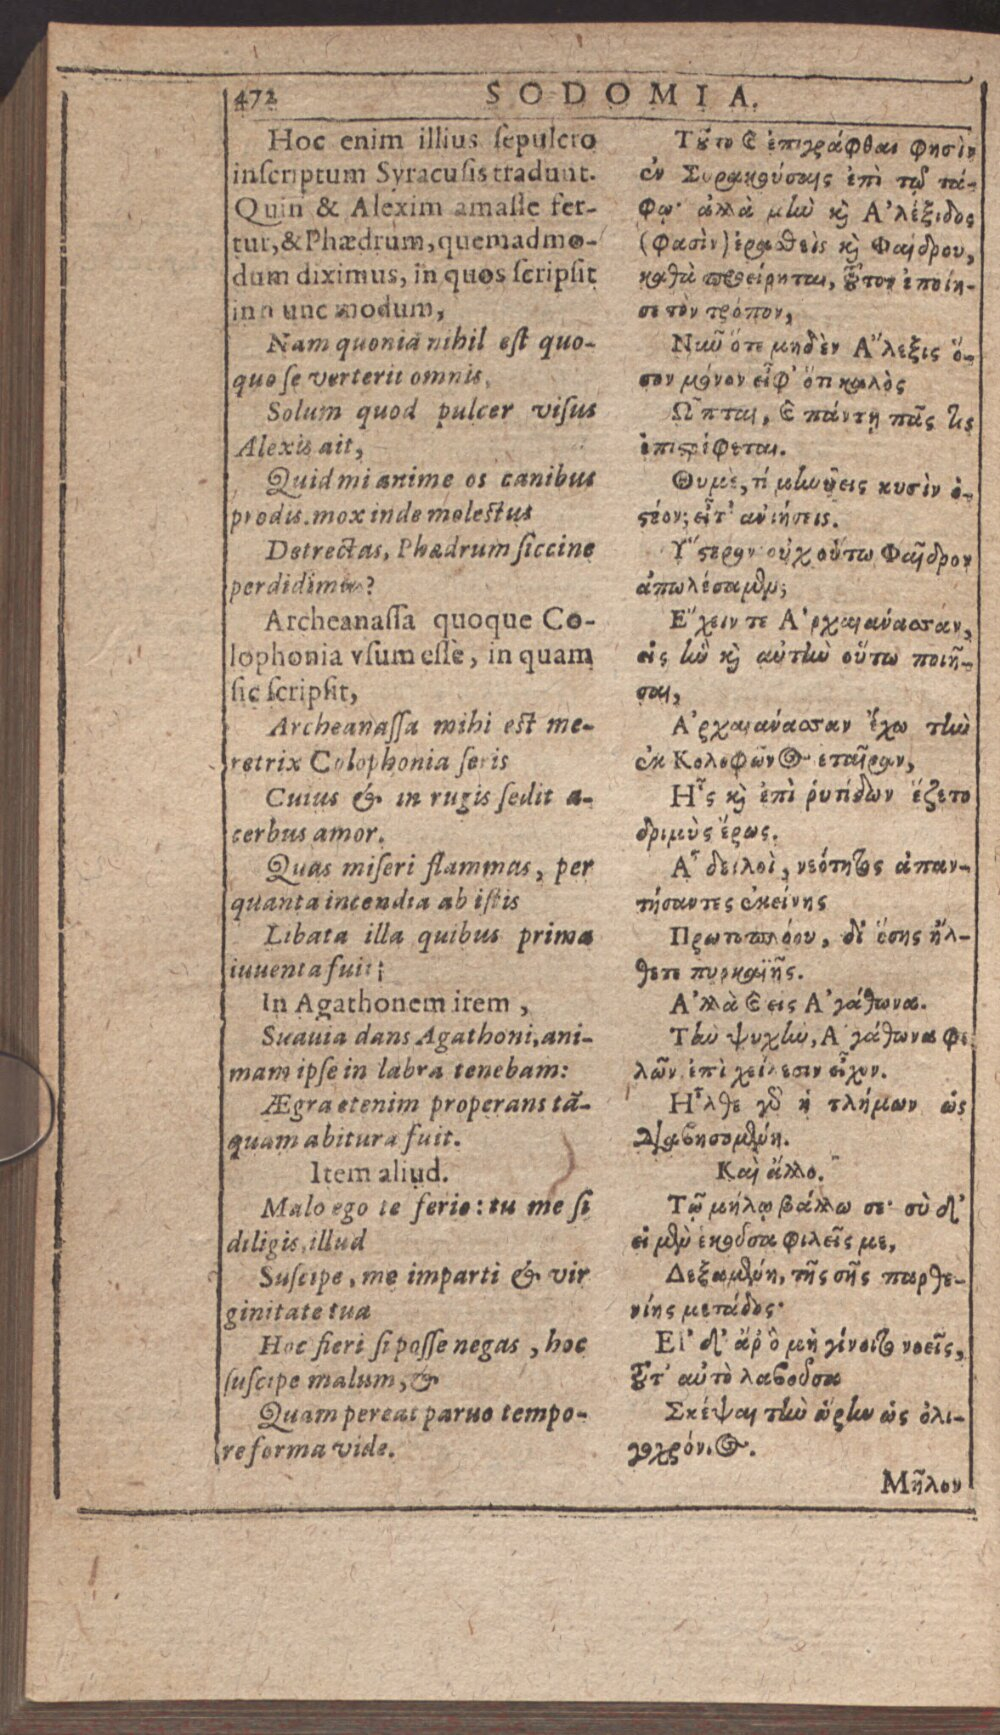 472 SODOMIA.
Hoc enim illius sepulcro
inscriptum Syracusis tradunt.
Quin & Alexim amasse fer-
tur, & Phædrum, quemadmo-
dum diximus, in quos scripsit
in nunc modum,
Nam quoniã nihil est quo-
quo se verterit omnis,
Solum quod pulcer visus
Alexis ait,
Quid mi anime os canibus
prodis. mox inde molestus
Detrectas, Phædrum siccine
perdidimus?
Archeanassa quoque Co-
lophonia vsum esse, in quam
sic scripsit,
Archeanassa mihi est me-
retrix Colophonia seris
Cuius & in rugis sedit a-
cerbus amor.
Quas miseri flammas, per
quanta incendia ab istis
Libata illa quibus prima
iuuenta fuit;
In Agathonem irem,
Suauia dans Agathoni, ani-
mam ipse in labra tenebam:
Ægra etenim properans tã-
quam abitura fuit.
Item aliud.
Malo ego te ferio: tu me si
diligis, illud
Suscipe, me imparti & vir
ginitate tua
Hoc fieri si posse negas, hoc
suscipe malum, &
Quam pereat paruo tempo-
re forma vide.
Τοῦτο καὶ ἐπιγράφθαι φησὶν
ἐν Συρακούσαις ἐπὶ τῷ τά-
φῳ· ἀλλὰ μὴν καὶ Ἀλέξιδος
(φασὶν) ἐρασθεὶς καὶ Φαίδρου,
καθὰ προείρηται, οὗτον ἐποίη-
σε τὸν τρόπον,
Νῦν ὅτε μηδὲν Ἄλεξις ὅ-
σον μόνον εἶφ' ὅτι καλὸς
Ὦπται, καὶ πάντη πᾶς τις
ἐπιστρέφεται.
Θυμὲ, τί μηνύεις κυσὶν ὀ-
στέον; εἶτ' ἀνιήσεις.
Ὕστερον οὐχ οὕτω Φαῖδρον
ἀπωλέσαμεν;
Ἔχειν τε Ἀρχαιάνασσαν,
εἰς ἣν καὶ αὐτὴν οὕτω ποιῆ-
σαι,
Ἀρχαιάνασσαν ἔχω τὴν
ἐκ Κολοφῶνος ἑταῖραν,
Ἧς καὶ ἐπὶ ῥυτίδων ἕζετο
δριμὺς ἔρως.
Ἆ δειλοὶ, νεότητος ἀπαν-
τήσαντες ἐκείνης
Πρωτοπλόου, δι' ὅσης ἤλ-
θετε πυρκαϊῆς.
Ἀλλὰ καὶ εἰς Ἀγάθωνα.
Τὴν ψυχὴν, Ἀγάθωνα φι
λῶν ἐπὶ χείλεσιν εἶχον.
Ἦλθε γὰρ ἡ τλήμων ὡς
διαβησομένη.
Καὶ ἄλλο.
Τῷ μήλῳ βάλλω σε· σὺ δ'
εἰ μὲν ἑκοῦσα φιλεῖς με,
Δεξαμένη, τῆς σῆς παρθε-
νίης μετάδος·
Εἰ δ' ἄρ' ὃ μὴ γίνοιτο νοεῖς,
τοῦτ' αὐτὸ λαβοῦσα
Σκέψαι τὴν ὥρην ὡς ὀλι-
γοχρόνιος.
Μῆλον